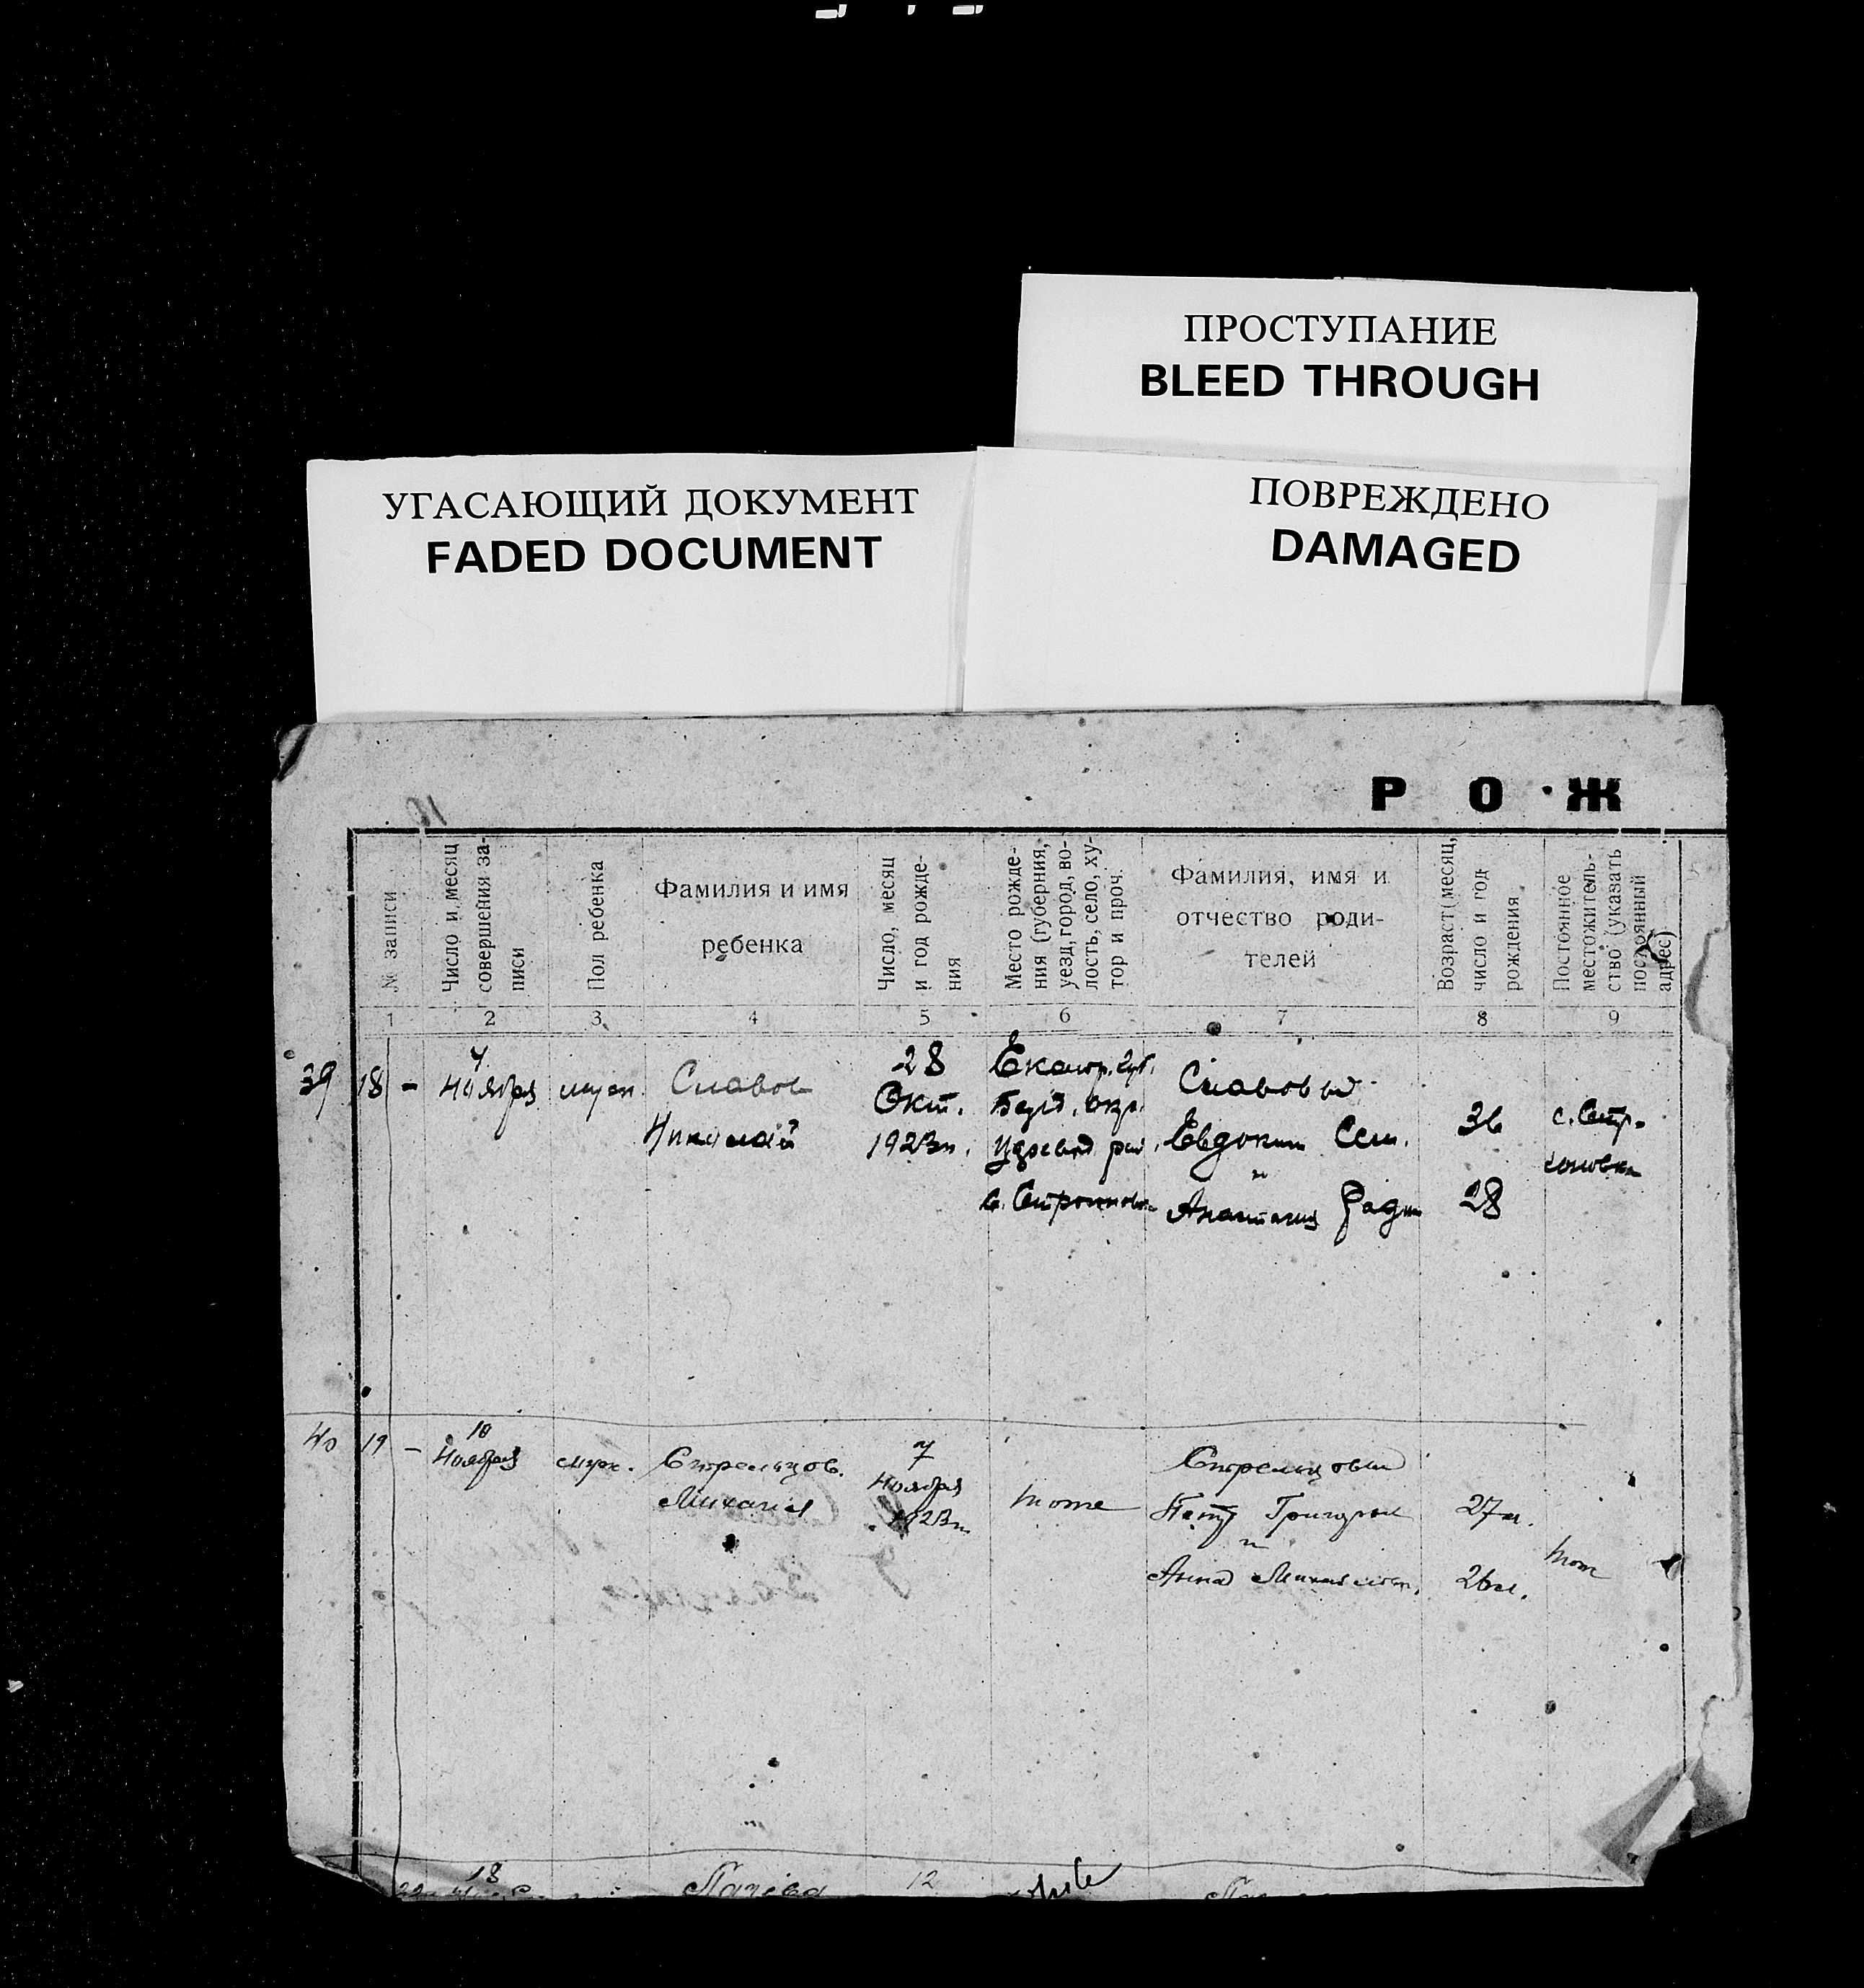 ПРОСТУПАНИЕ
BLEED THROUGH
УГАСАЮЩИЙ ДОКУМЕНТ
FADED DOCUMENT
ПОВРЕЖДЕНО
DAMAGED
Р О Ж
№ записи
Число и месяц
совершения за-
писи
Пол ребенка
Фамилия и имя
ребенка
Число, месяц
и год рожде-
ния
Место рожде-
ния (губерния,
уезд, город, во-
лость, село, ху-
тор и проч.
Фамилия, имя и
отчество роди-
телей
Возраст (месяц,
число и год
рождения
Постоянное
местожитель-
ство (указать
постоянный
адрес)
1 2 3 4 5 6 7 8 9
39 18 -
7
Ноября
муж.
Славов
Николай
28
Окт.
1923 г.
Екатер. губ.
Славовы
Евдоким Сем.
и
Анастасия
36
28
40 19 -
10
Ноября
муж.
Стрельцов.
Михаил
7
Ноября
1923 г.
тоже
Стрельцовы
Петр Григорьев
и
Анна Михайлов.
27 л.
26 л.
тоже
18
12